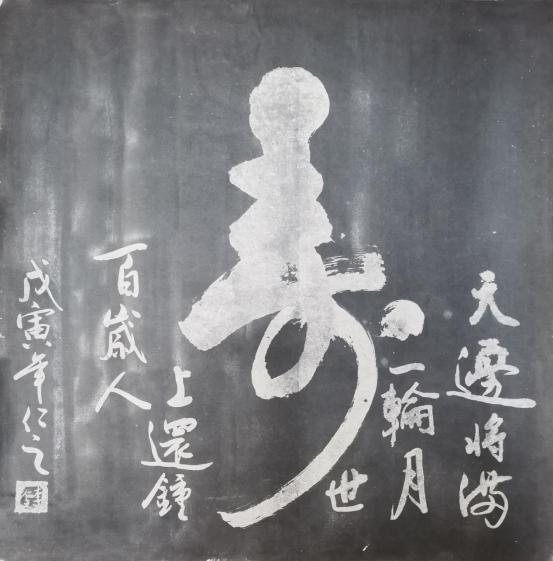 寿
天邊將满
一輪月
世
上還鐘
百歲人
戊寅年仁之